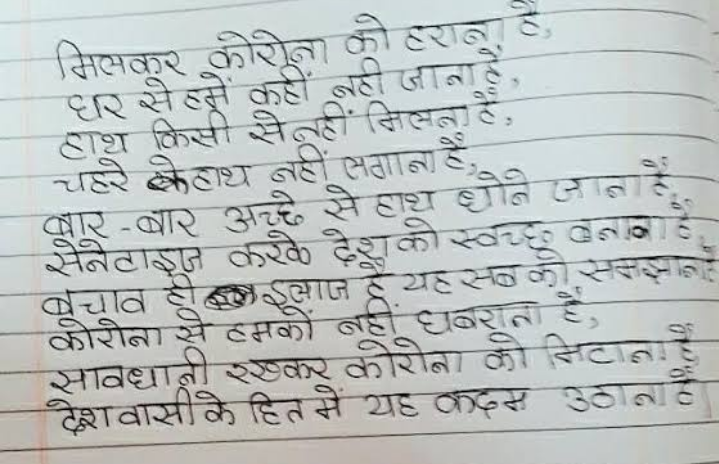 मिलकर कोरोना को हराना है,
घर से हमें कहीं नही जाना है,
हाथ किसी से नहीं मिलना है,
चहरे के हाथ नहीं लगाना है,
बार-बार अच्छे से हाथ धोने जाना है,
सेनेटाइज करके देश को स्वच्छ बनाना है,
बचाव ही इलाज है यह सब को समझाना है
कोरोना से हमकों नहीं घबराना है,
सावधानी रखकर कोरोना को मिटाना है
देशवासी के हित में यह कदम उठाना है